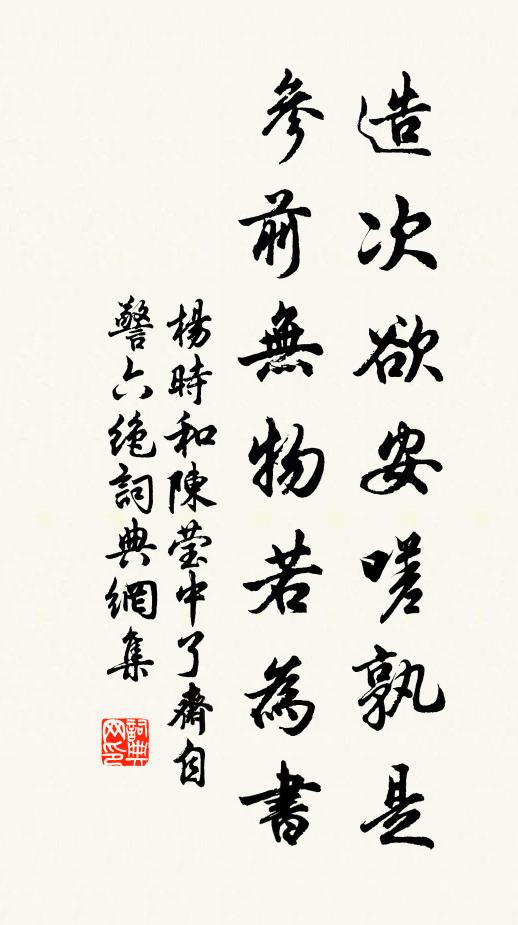 造次欲安嗟孰是
參前無物若為書
楊時和陳瑩中了齋自
警六絕詞典網集
詞典網印